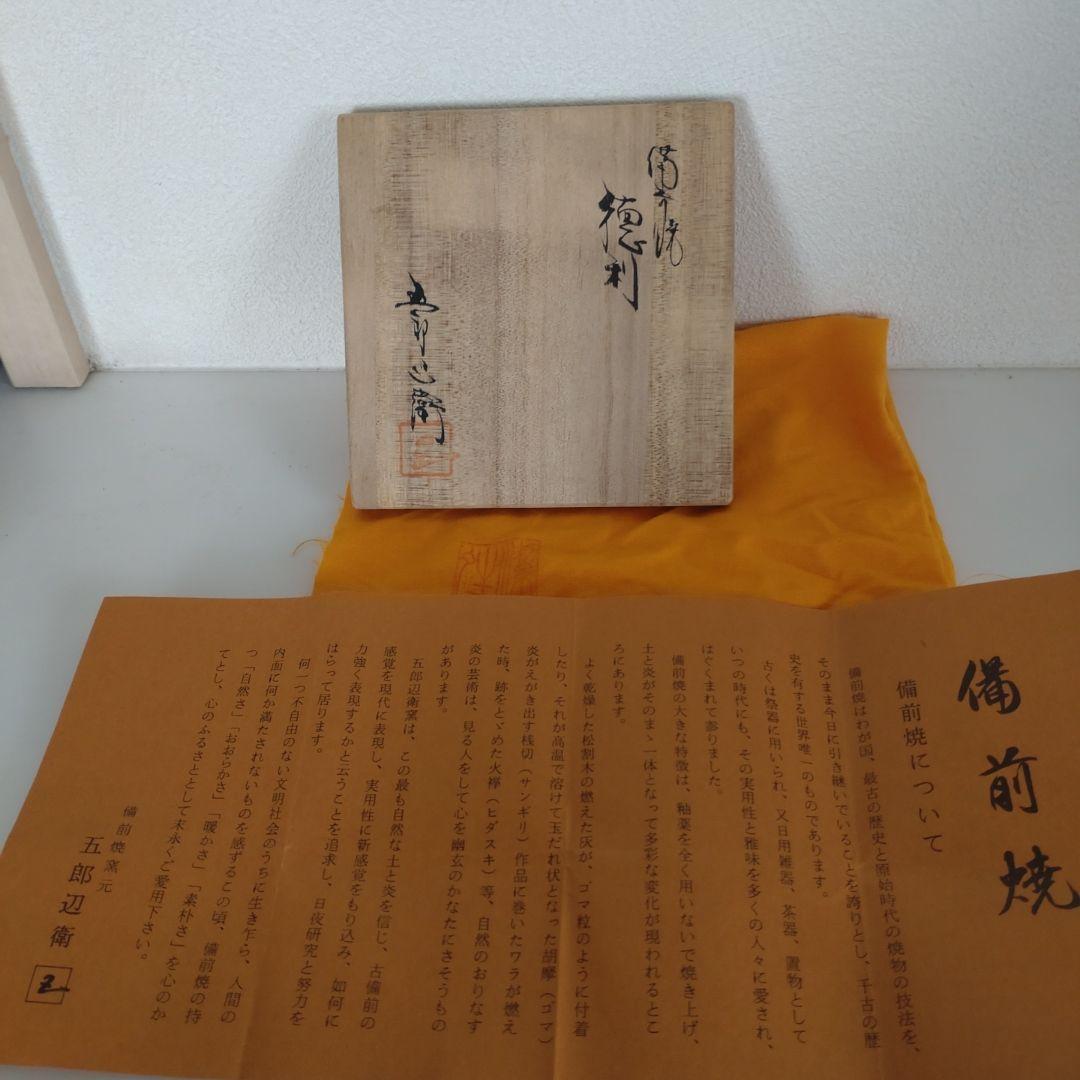 備前焼
徳利
五郎辺衛
備前焼
備前焼について
備前焼はわが国、最古の歴史と原始時代の焼物の技法を、
そのまま今日に引き継いでいることを誇りとし、千古の歴
史を有する世界唯一のものであります。
古くは祭器に用いられ、又日用雑器、茶器、置物として
いつの時代にも、その実用性と雅味を多くの人々に愛され、
はぐくまれて参りました。
備前焼の大きな特徴は、釉薬を全く用いないで焼き上げ、
土と炎がそのまゝ一体となって多彩な変化が現われるとこ
ろにあります。
よく乾燥した松割木の燃えた灰が、ゴマ粒のように付着
したり、それが高温で溶けて玉だれ状となった胡摩（ゴマ）
炎がえがき出す桟切（サンギリ）作品に巻いたワラが燃え
た時、跡をとゞめた火襷（ヒダスキ）等、自然のおりなす
炎の芸術は、見る人をして心を幽玄のかなたにさそうもの
があります。
五郎辺衛窯は、この最も自然な土と炎を信じ、古備前の
感覚を現代に表現し、実用性に新感覚をもり込み、如何に
力強く表現するかと云うことを追求し、日夜研究と努力を
はらって居ります。
何一つ不自由のない文明社会のうちに生き乍ら、人間の
内面に何か満たされないものを感ずるこの頃、備前焼の持
つ「自然さ」「おおらかさ」「暖かさ」「素朴さ」を心のか
てとし、心のふるさととして末永くご愛用下さい。
備前焼窯元
五郎辺衛